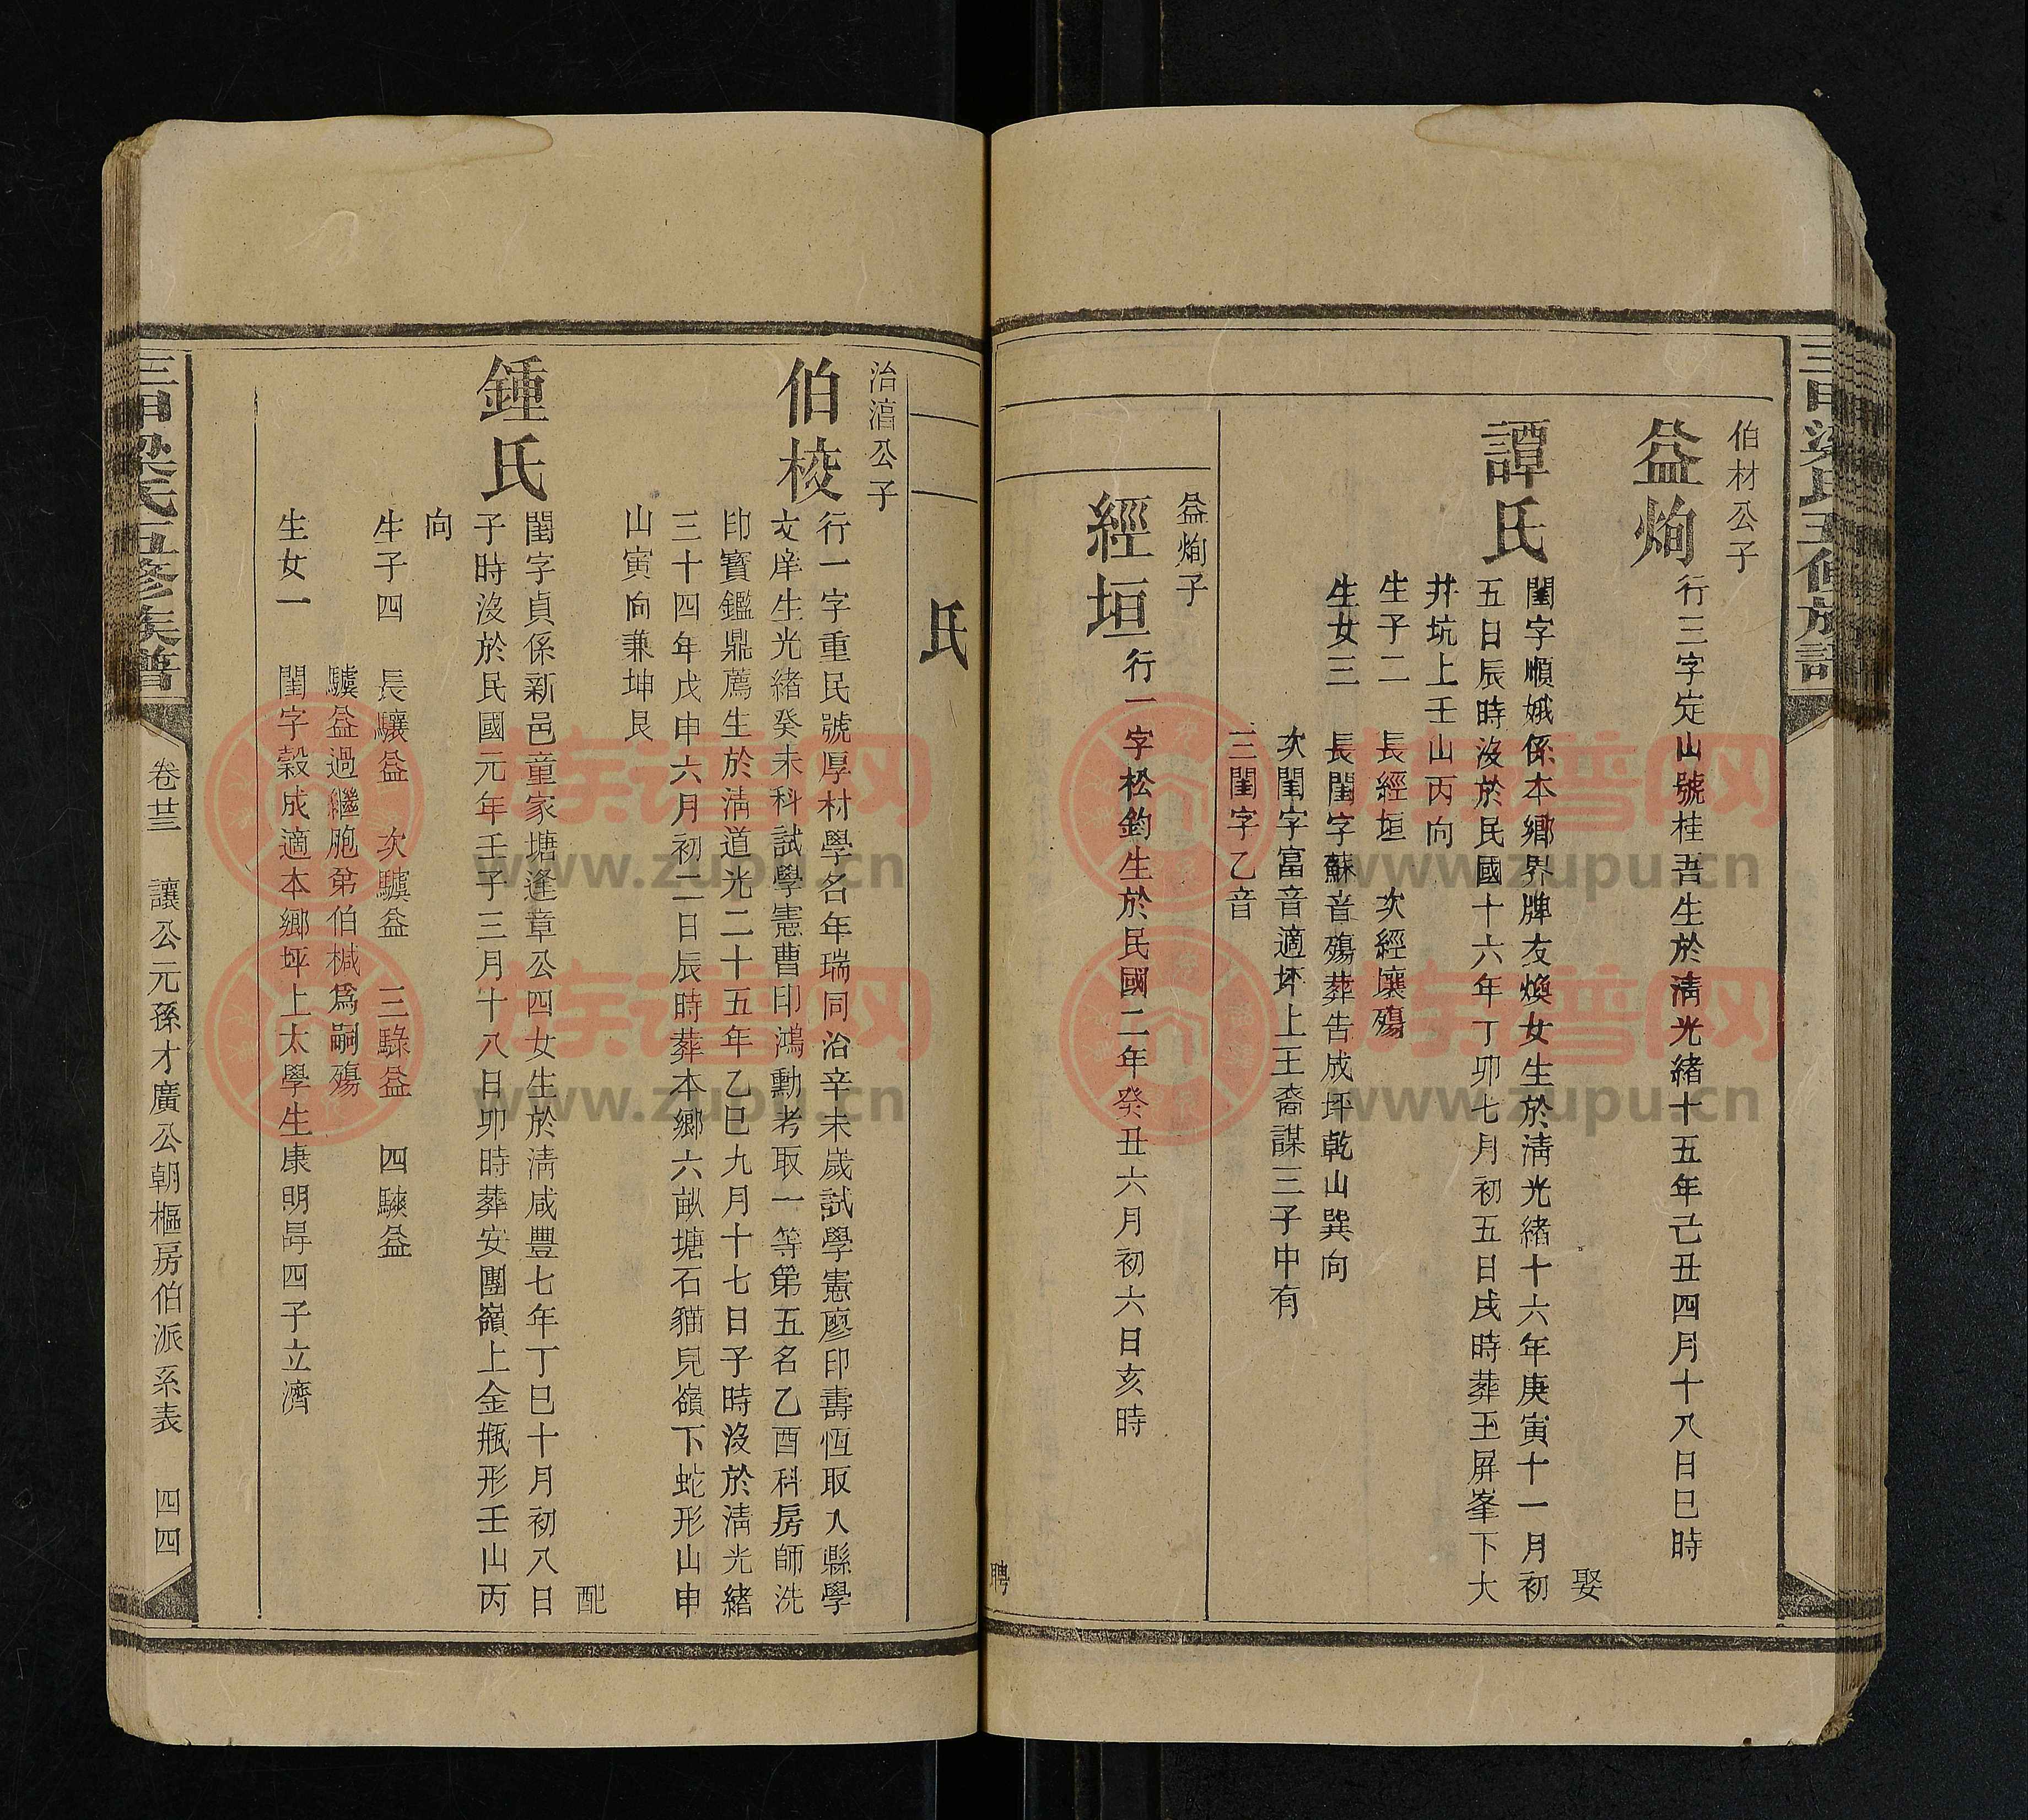 三甲梁氏五修族譜
伯材公子
益炯
行三字定山號桂吾生於淸光緖十五年己丑四月十八日巳時
娶
譚氏
閨字順娥係本鄉界牌友煥女生於淸光緖十六年庚寅十一月初
五日辰時沒於民國十六年丁卯七月初五日戌時葬玉屏峯下大
井坑上壬山丙向
生子二 長經垣 次經壤殤
生女三 長閨字蘇音殤葬告成坪乾山巽向
次閨字富音適坪上王裔謀三子中有
三閨字乙音
益炯子
經垣
行一字松鈞生於民國二年癸丑六月初六日亥時
聘
氏
治濇公子
伯校
行一字重民號厚村學名年瑞同治辛未歲試學憲廖印壽恆取入縣學
文庠生光緖癸未科試學憲曹印鴻勳考取一等第五名乙酉科房師洗
印寶鑑鼎薦生於淸道光二十五年乙巳九月十七日子時沒於淸光緖
三十四年戊申六月初二日辰時葬本鄉六畝塘石貓兒嶺下蛇形山申
山寅向兼坤艮
配
鍾氏
閨字貞係新邑童家塘逢章公四女生於淸咸豐七年丁巳十月初八日
子時沒於民國元年壬子三月十八日卯時葬安團嶺上金瓶形壬山丙
向
生子四 長驤益 次驥益 三騄益 四駷益
驥益過繼胞弟伯棫爲嗣殤
生女一 閨字穀成適本鄉坪上太學生康明昪四子立濟
三甲梁氏五修族譜
卷廿三 讓公元孫才廣公朝樞房伯派系表 四四
族譜网
www.zupu.cn
族譜网
www.zupu.cn
族譜网
www.zupu.cn
族譜网
www.zupu.cn